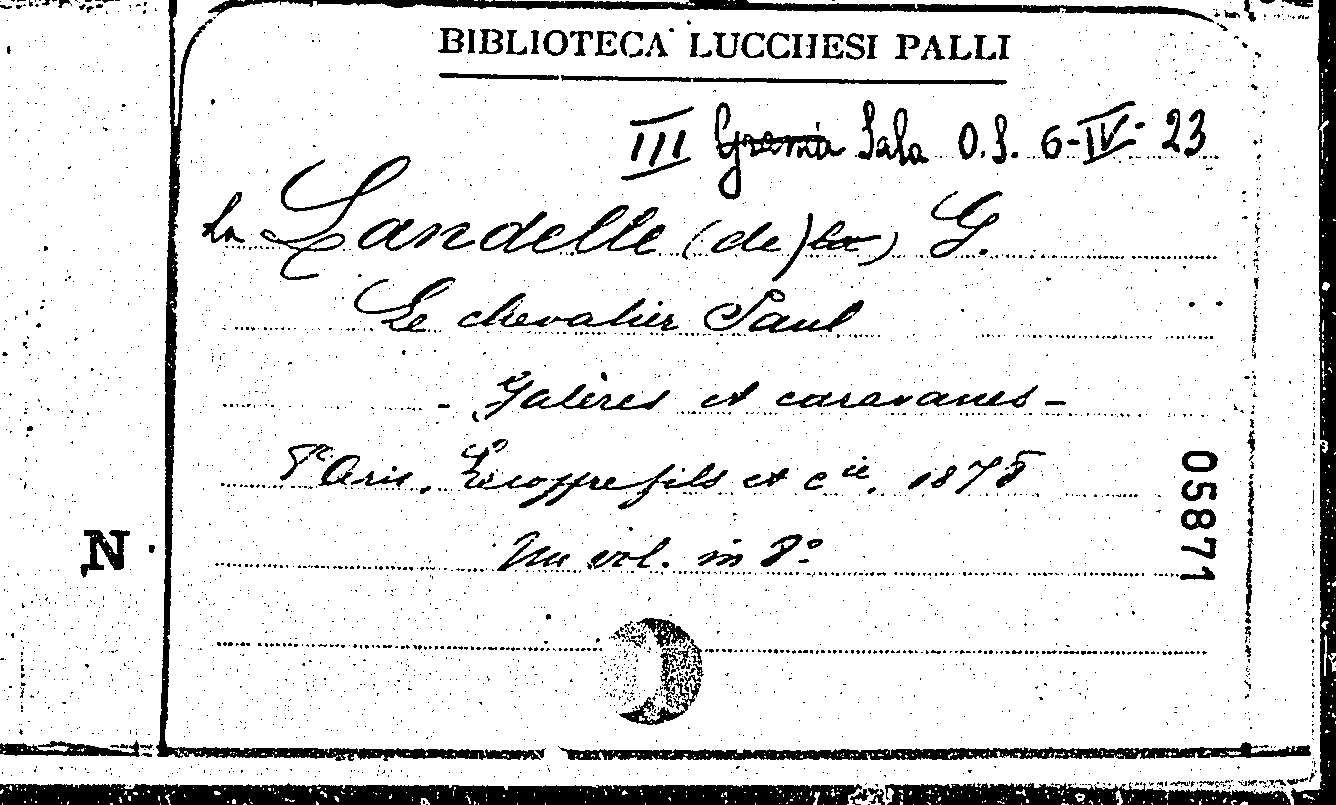 BIBLIOTECA LUCCHESI PALLI
III Sala O.S. 6-IV-23
La Landelle (de) la) G.
Le chevalier Paul
- Galères et caravanes -
Paris, Lecoffre fils et cie, 1878
Un vol. in 8º
05871
N